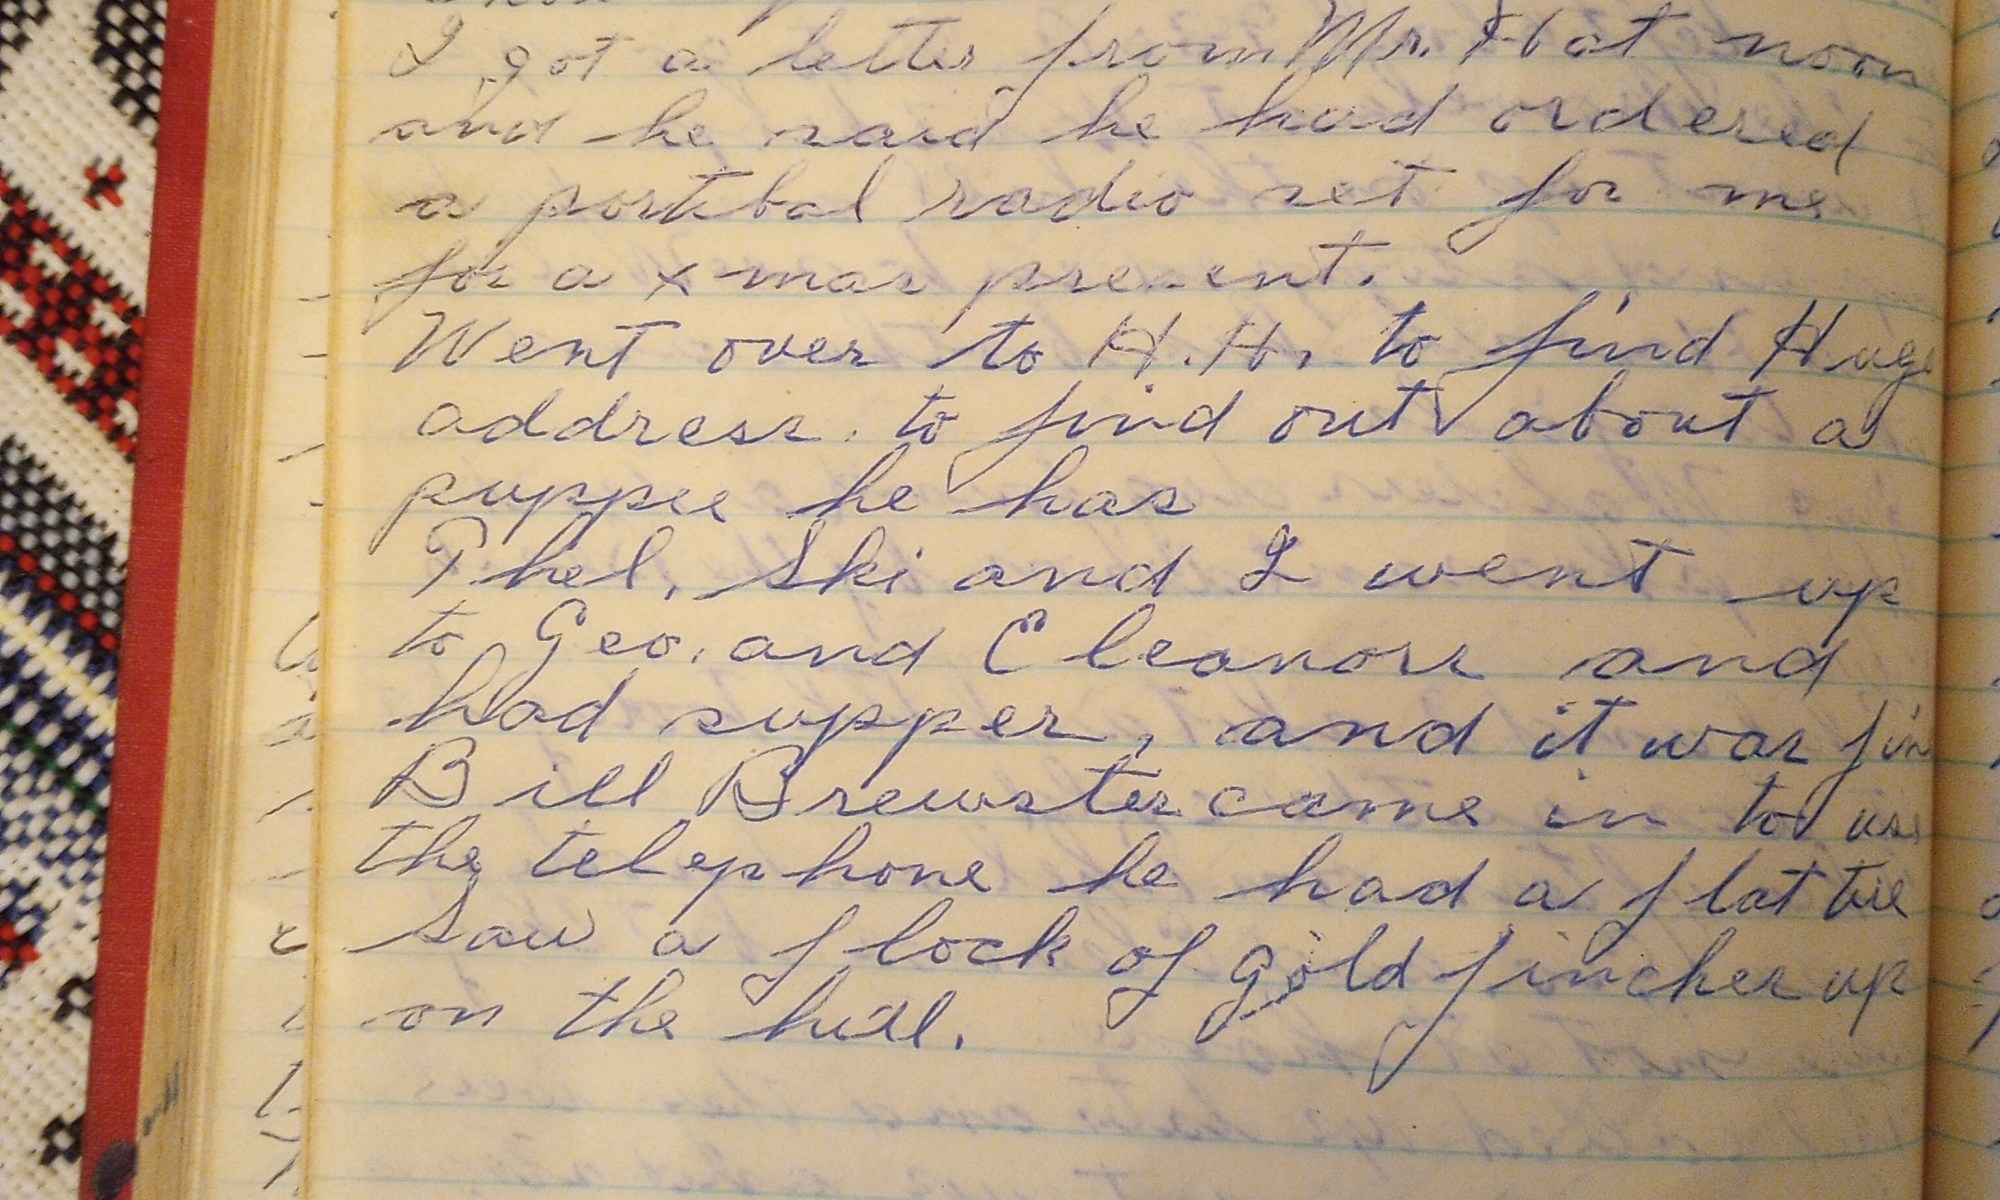 I got a letter from Mr. H at noon
and he said he had ordered
a portibal radio set for me
for a x mas present.
Went over to H.H. to find
address. to find out about a
puppee he has
Phel, Ski and I went up
to Geo. and Eleanors and
had supper, and it was
Bill Brewster came in to
the telephone he had a flat tire
Saw a flock of gold finches up
on the hill.